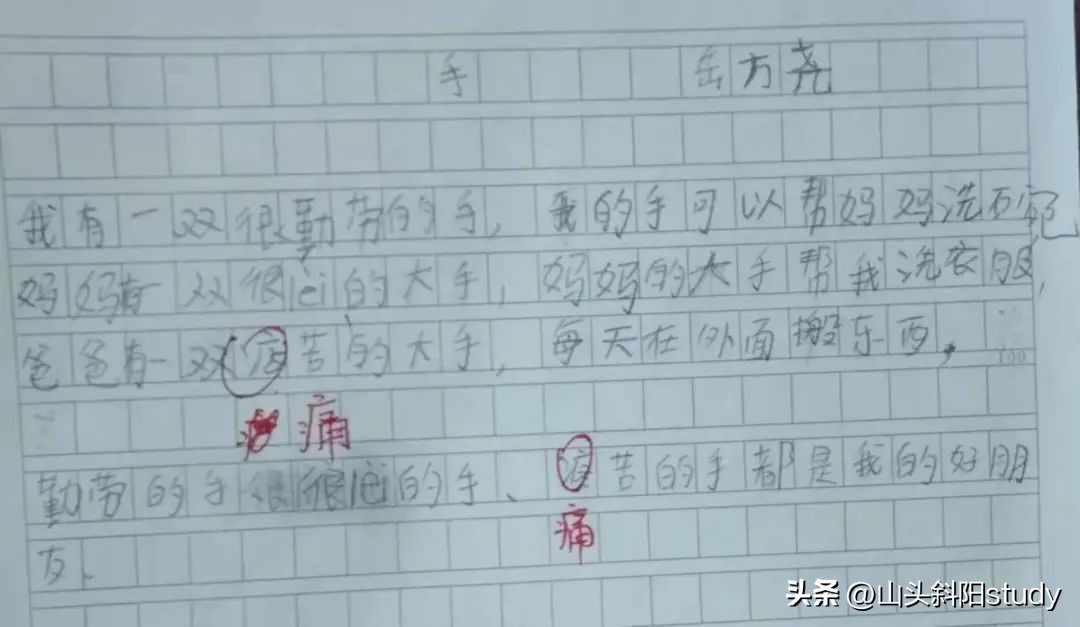 手 岳方尧
我有一双很勤劳的手,我的手可以帮妈妈洗碗
妈妈有双很lèi的大手,妈妈的大手帮我洗衣服,
爸爸有一双苦的大手,每天在外面搬东西,
100
痛
勤劳的手很很lèi的手、苦的手都是我的好朋
痛
友、
头条 @山头斜阳study